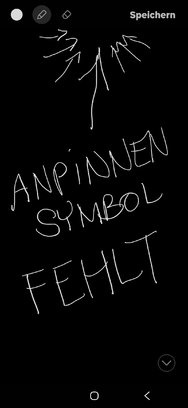 Speichern
ANPiNNEN
SYMBOL
FEHLT